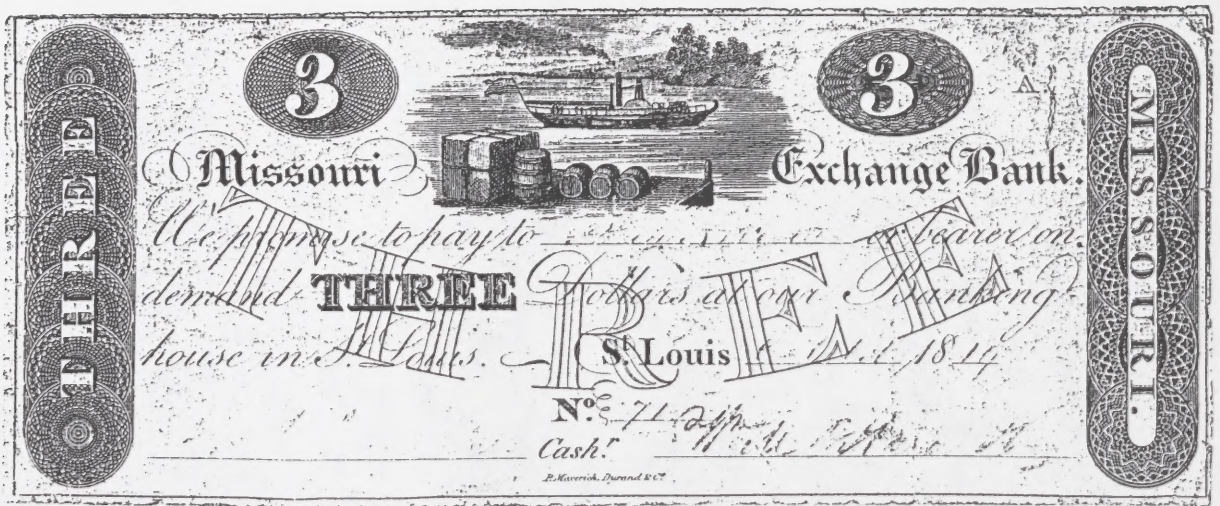 3 3
A
Missouri Exchange Bank.
We promise to pay to or bearer on
demand THREE Dollars at our Banking
house in St. Louis. St Louis 18
No 71
Cashr
P. Maverick, Durand & Co
THREE
THREE
MISSOURI.